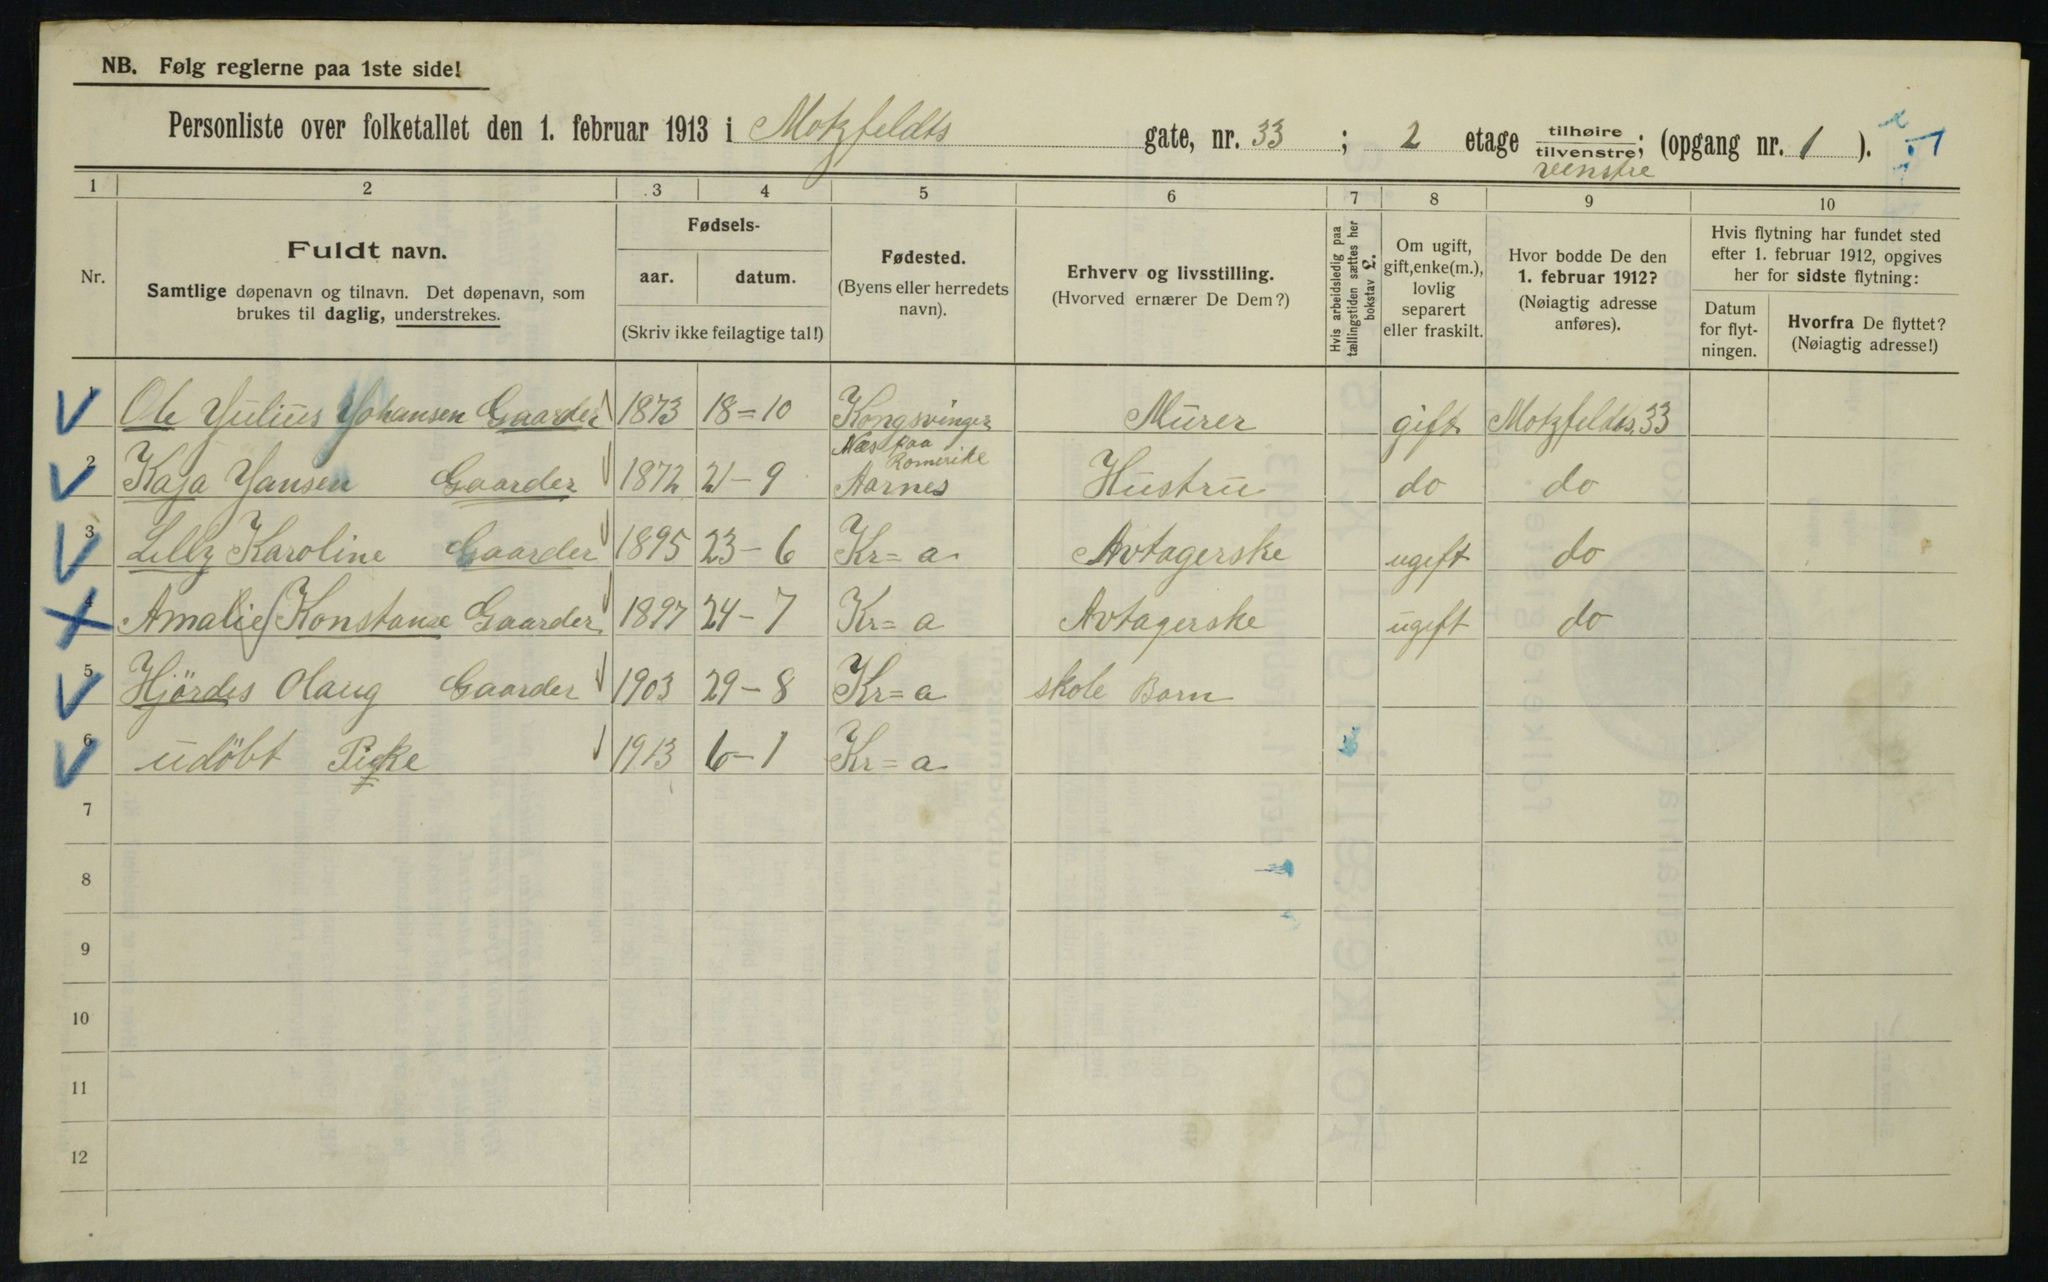 NB. Følg reglerne paa 1ste side!
Personliste over folketallet den 1. februar 1913 i Motzfeldts gate, nr. 33 ; 2 etage tilhøire / tilvenstre; (opgang nr. 1 ).
venstre
1 2 3 4 5 6 7 8 9 10
Nr.
Fuldt navn.
Samtlige døpenavn og tilnavn. Det døpenavn, som
brukes til daglig, understrekes.
Fødsels-
aar. datum.
(Skriv ikke feilagtige tal!)
Fødested.
(Byens eller herredets
navn).
Erhverv og livsstilling.
(Hvorved ernærer De Dem?)
Hvis arbeidsledig paa
tællingstiden sættes her
bokstav L.
Om ugift,
gift, enke(m.),
lovlig
separert
eller fraskilt.
Hvor bodde De den
1. februar 1912?
(Nøiagtig adresse
anføres).
Hvis flytning har fundet sted
efter 1. februar 1912, opgives
her for sidste flytning:
Datum
for flyt-
ningen.
Hvorfra De flyttet?
(Nøiagtig adresse!)
1 Ole Julius Johansen Gaarder 1873 18=10 Kongsvinger Murer gift Motzfeldts 33
Næs paa
Romerike
2 Kaja Jansen Gaarder 1872 21-9 Aarnes Hustru do do
3 Lelly Karoline Gaarder 1895 23-6 Kr=a Avtagerske ugift do
4 Amalie Konstanse Gaarder 1897 24-7 Kr=a Avtagerske ugift do
5 Hjördes Olaug Gaarder 1903 29-8 Kr=a skole Barn
6 udöbt Picke 1913 6-1 Kr=a
7
8
9
10
11
12